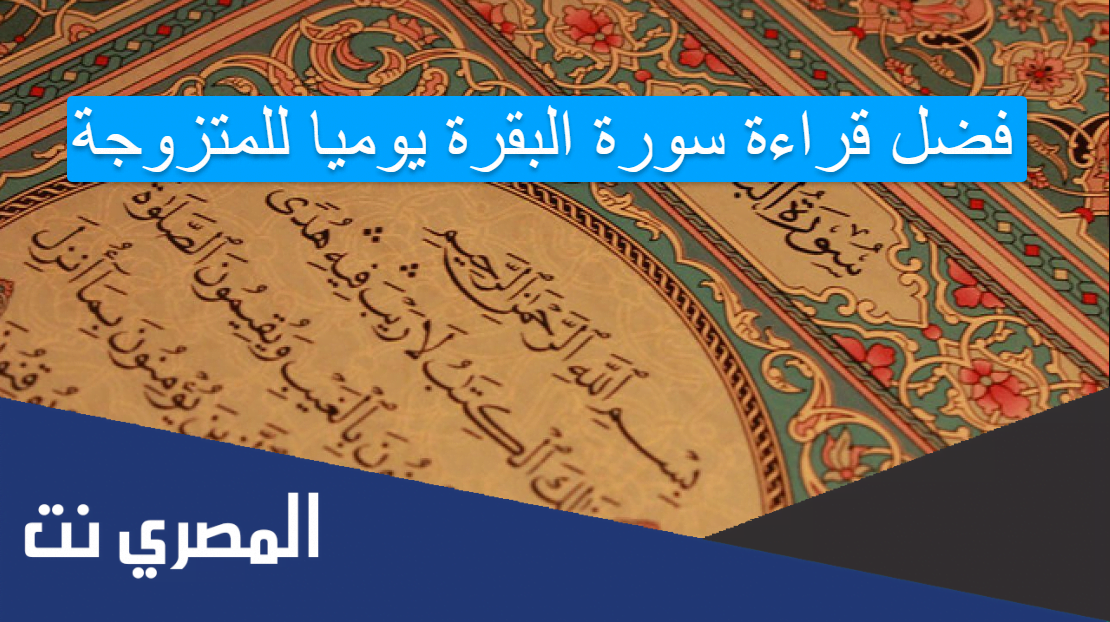 فضل قراءة سورة البقرة يوميا للمتزوجة
سُورَةُ
بِسْمِ ٱللَّهِ ٱلرَّحْمَٰنِ ٱلرَّحِيمِ
ٱلْكِتَٰبُ لَا رَيْبَ فِيهِ هُدًى
بِٱلْغَيْبِ وَيُقِيمُونَ ٱلصَّلَوٰةَ
يُؤْمِنُونَ بِمَآ أُنزِلَ
المصري نت